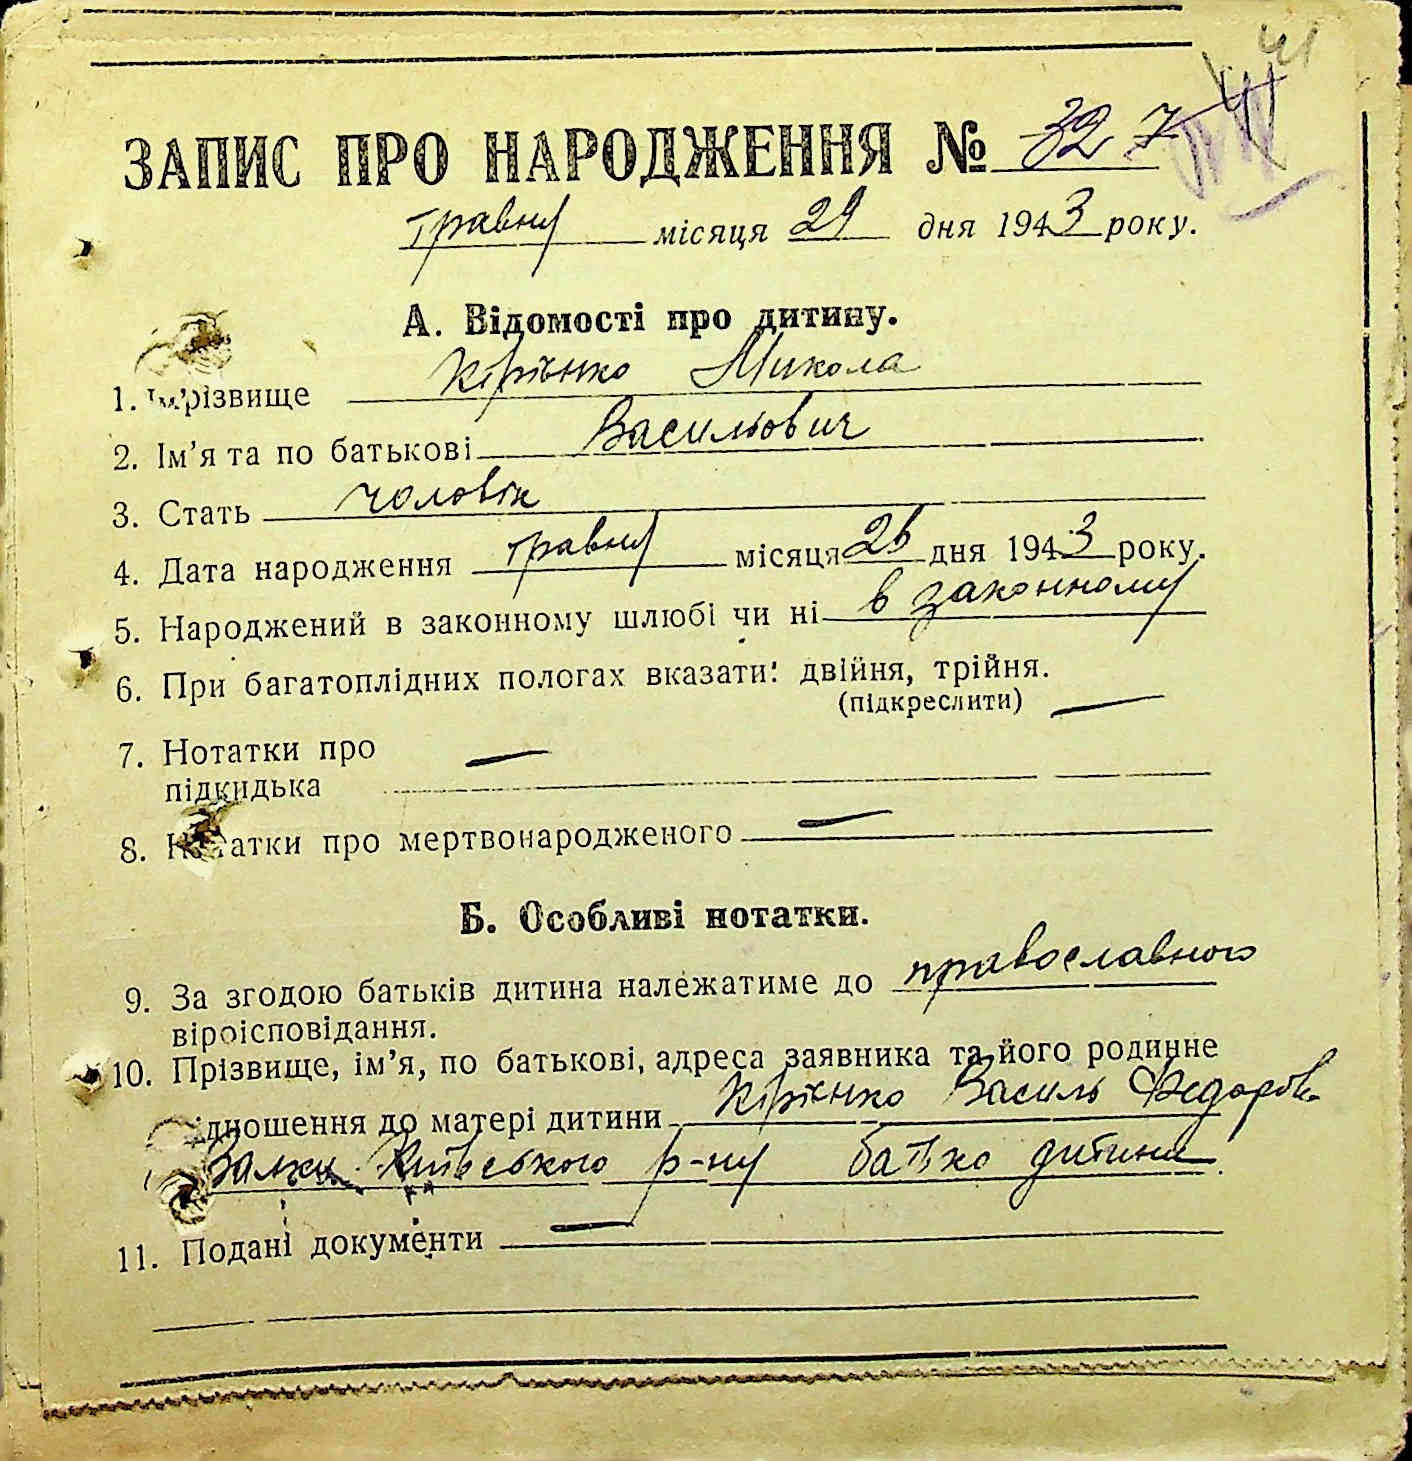 41
ЗАПИС ПРО НАРОДЖЕННЯ № 327
травня місяця 29 дня 1943 року.
А. Відомості про дитину.
1. Прізвище Кірієнко Микола
2. Ім’я та по батькові Васильович
3. Стать чоловік
4. Дата народження травня місяця 26 дня 1943 року.
5. Народжений в законному шлюбі чи ні в законному
6. При багатоплідних пологах вказати: двійня, трійня.
(підкреслити) —
7. Нотатки про —
підкидька
8. Нотатки про мертвонародженого —
Б. Особливі нотатки.
9. За згодою батьків дитина належатиме до православного
віроісповідання.
10. Прізвище, ім’я, по батькові, адреса заявника та його родинне
відношення до матері дитини Кірієнко Василь Федорів.
Київського р-ну батько дитини
11. Подані документи —